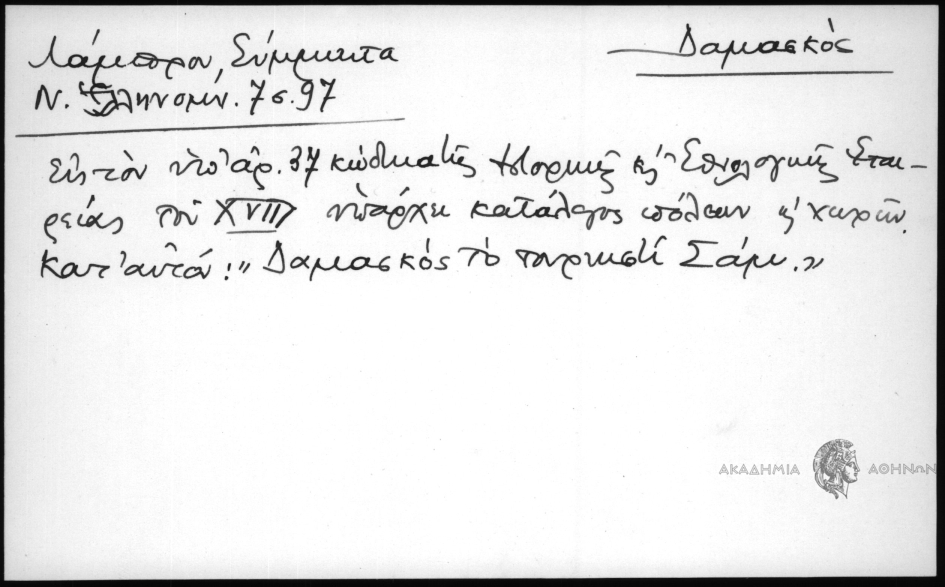 Λάμπρου, Σύμμικτα
Ν. Ἑλληνομν. 7 σ. 97
Δαμασκός
Εἰς τὸν ὑπ' ἀρ. 37 κώδικα τῆς Ἱστορικῆς κ' Ἐθνολογικῆς Ἑται-
ρείας τοῦ XVII ὑπάρχει κατάλογος πόλεων κ' χωρῶν.
Κατ' αὐτόν: „Δαμασκὸς τὸ τουρκιστὶ Σάμ."
ΑΚΑΔΗΜΙΑ ΑΘΗΝΩΝ